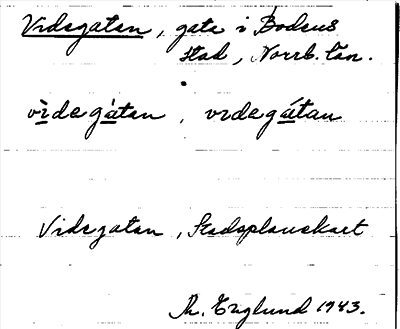 Videgatan, gata i Bodens
stad, Norrb. län.
vìdegàtan, videgátan
Videgatan, Stadsplanekart
Th. Englund 1943.